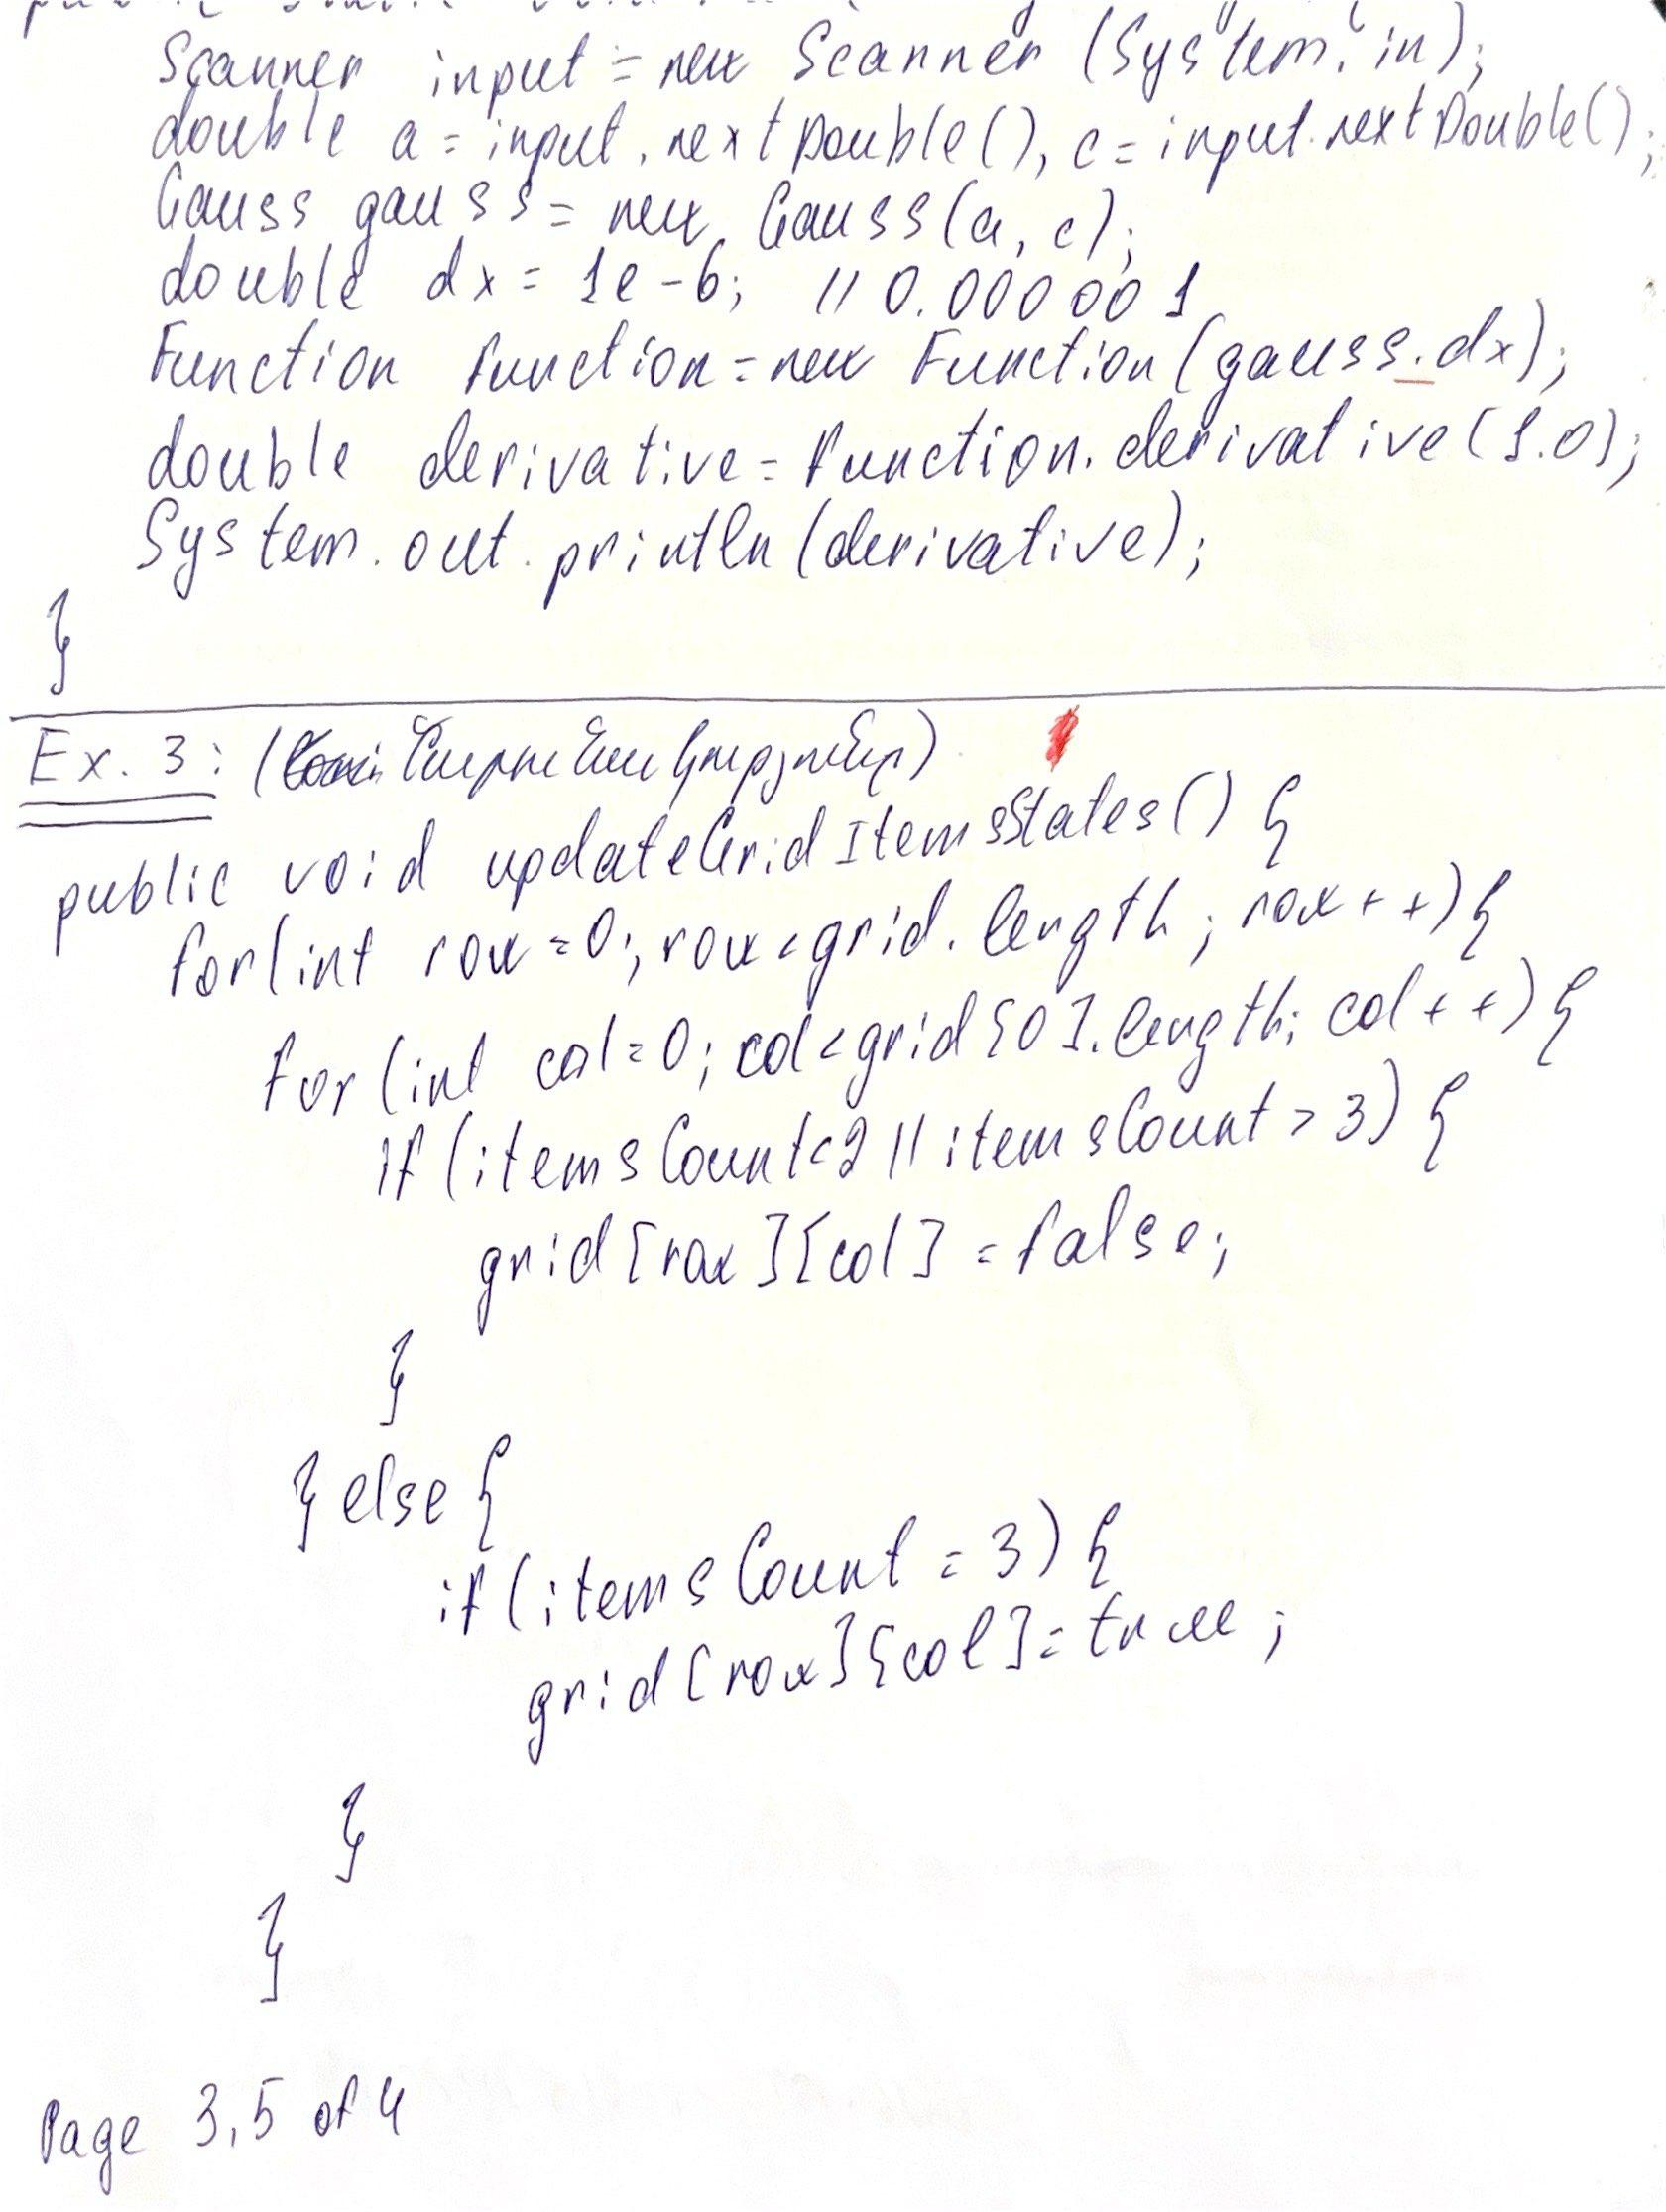 Scanner input = new Scanner (System.in);
double a = input.nextDouble(), c = input.nextDouble();
Gauss gauss = new Gauss(a, c);
double dx = 1e-6; // 0.000001
Function function = new Function(gauss.dx);
double derivative = function.derivative(1.0);
System.out.println(derivative);
}
Ex. 3: (
public void updateGridItemsStates() {
for(int row = 0; row < grid.length; row++) {
for(int col = 0; col < grid[0].length; col++) {
if (itemsCount < 2 || itemsCount > 3) {
grid[row][col] = false;
}
} else {
if (itemsCount = 3) {
grid[row][col] = true;
}
}
Page 3,5 of 4